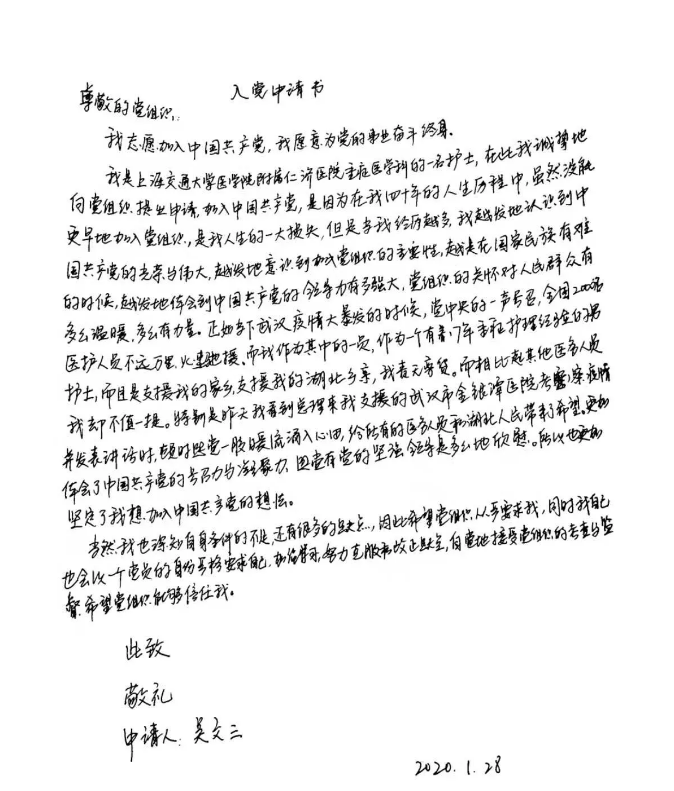 入党申请书
尊敬的党组织:
我志愿加入中国共产党,我愿意为党的事业奋斗终身。
我是上海交通大学医学院附属仁济医院重症医学科的一名护士,在此我诚挚地
向党组织提出申请,加入中国共产党,是因为在我四十年的人生历程中,虽然没能
更早地加入党组织,是我人生的一大损失,但是当我经历越多,我越发地认识到中
国共产党的光荣与伟大,越发地意识到加入党组织的重要性,越是在国家民族有难
的时候,越发地体会到中国共产党的领导力有多强大,党组织的关怀对人民群众有
多么温暖,多么有力量。正如当下武汉疫情大暴发的时候,党中央的一声号召,全国2000名
医护人员不远万里,火星驰援。而我作为其中的一员,作为一个有着17年重症护理经验的男
护士,而且是支援我的家乡,支援我的湖北乡亲,我责无旁贷。而相比起其他医务人员
我却不值一提。特别是昨天我看到总理来我支援的武汉市金银潭医院考察疫情
并发表讲话时,顿时感觉一股暖流涌入心田,给所有的医务人员和湖北人民带来了希望。更加
体会了中国共产党的号召力与凝聚力,国家有党的坚强领导是多么地欣慰。所以也更加
坚定了我想加入中国共产党的想法。
当然我也深知自身条件的不足,还有很多的缺点,因此希望党组织从严要求我,同时我自己
也会以一个党员的身份严格要求自己,努力克服和改正缺点,自觉地接受党组织的考查与监
督。希望党组织能够信任我。
此致
敬礼
申请人:吴文三
2020.1.28